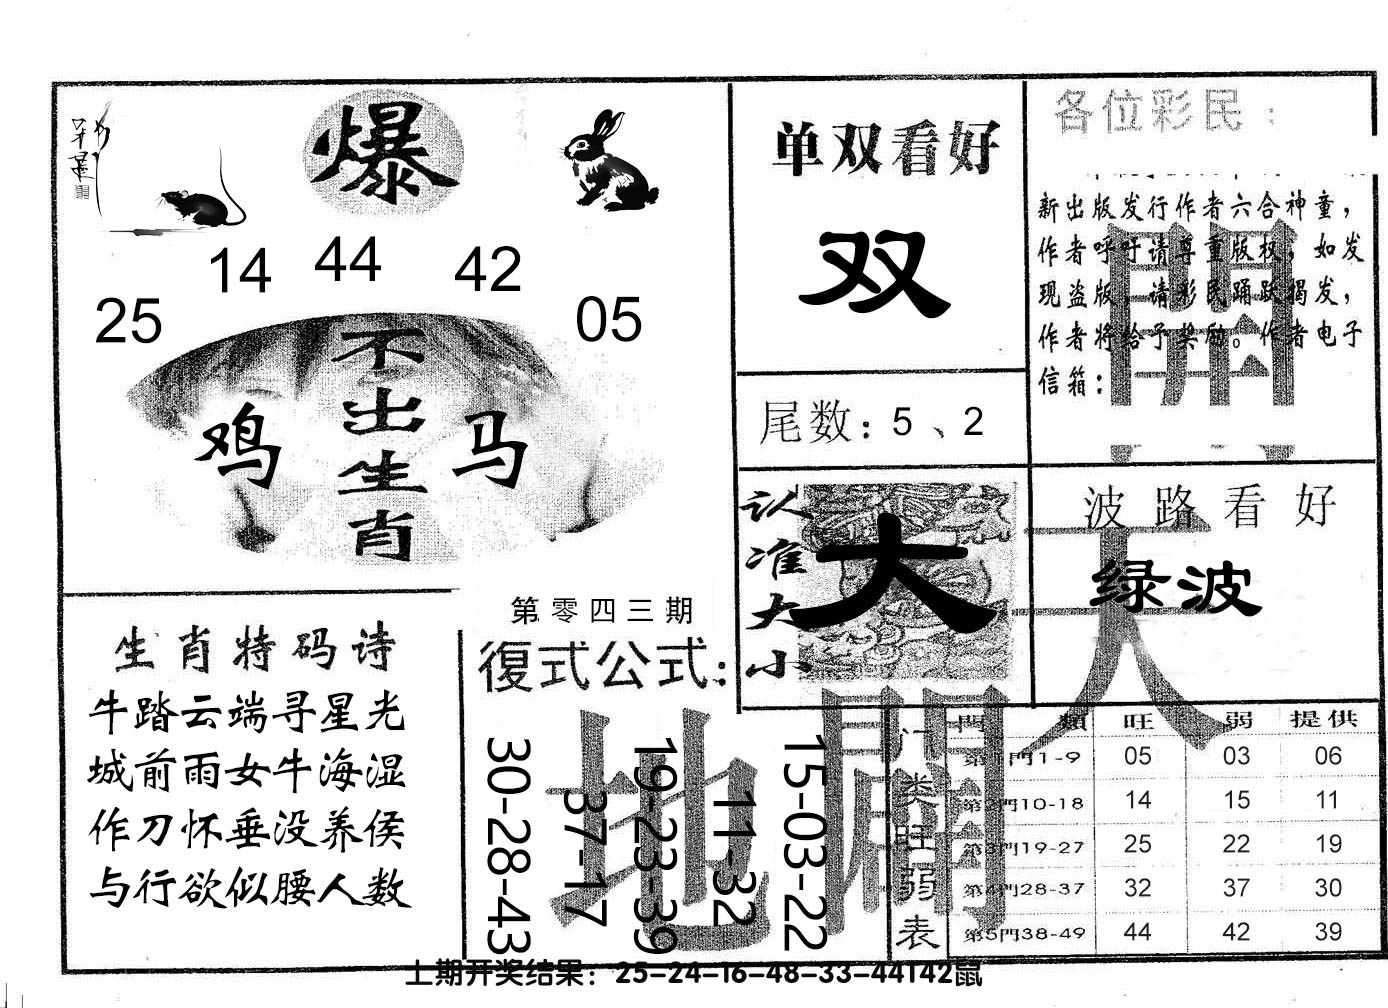 爆
25 14 44 42 05
不出生肖
鸡 马
单双看好
双
尾数：5、2
各位彩民：
新出版发行作者六合神童，
作者呼吁请尊重版权，如发
现盗版，请彩民踊跃揭发，
作者将给予奖励。作者电子
信箱：
認准大小
大
波路看好
绿波
天
開
地
闢
生肖特码诗
牛踏云端寻星光
城前雨女牛海湿
作刀怀垂没养侯
与行欲似腰人数
第零四三期
復式公式：
30-28-43
37-17
19-23-39
11-32
15-03-22
门类旺弱表
門類 旺 弱 提供
第1門1-9 05 03 06
第2門10-18 14 15 11
第3門19-27 25 22 19
第4門28-37 32 37 30
第5門38-49 44 42 39
上期开奖结果：25-24-16-48-33-44T42鼠